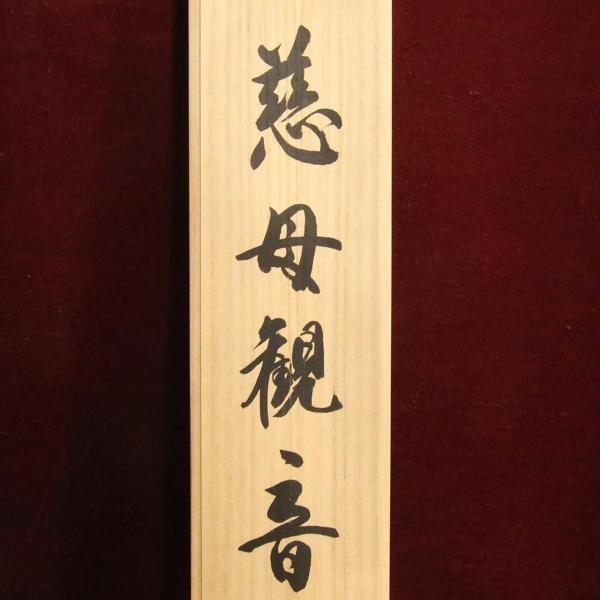 慈母観音